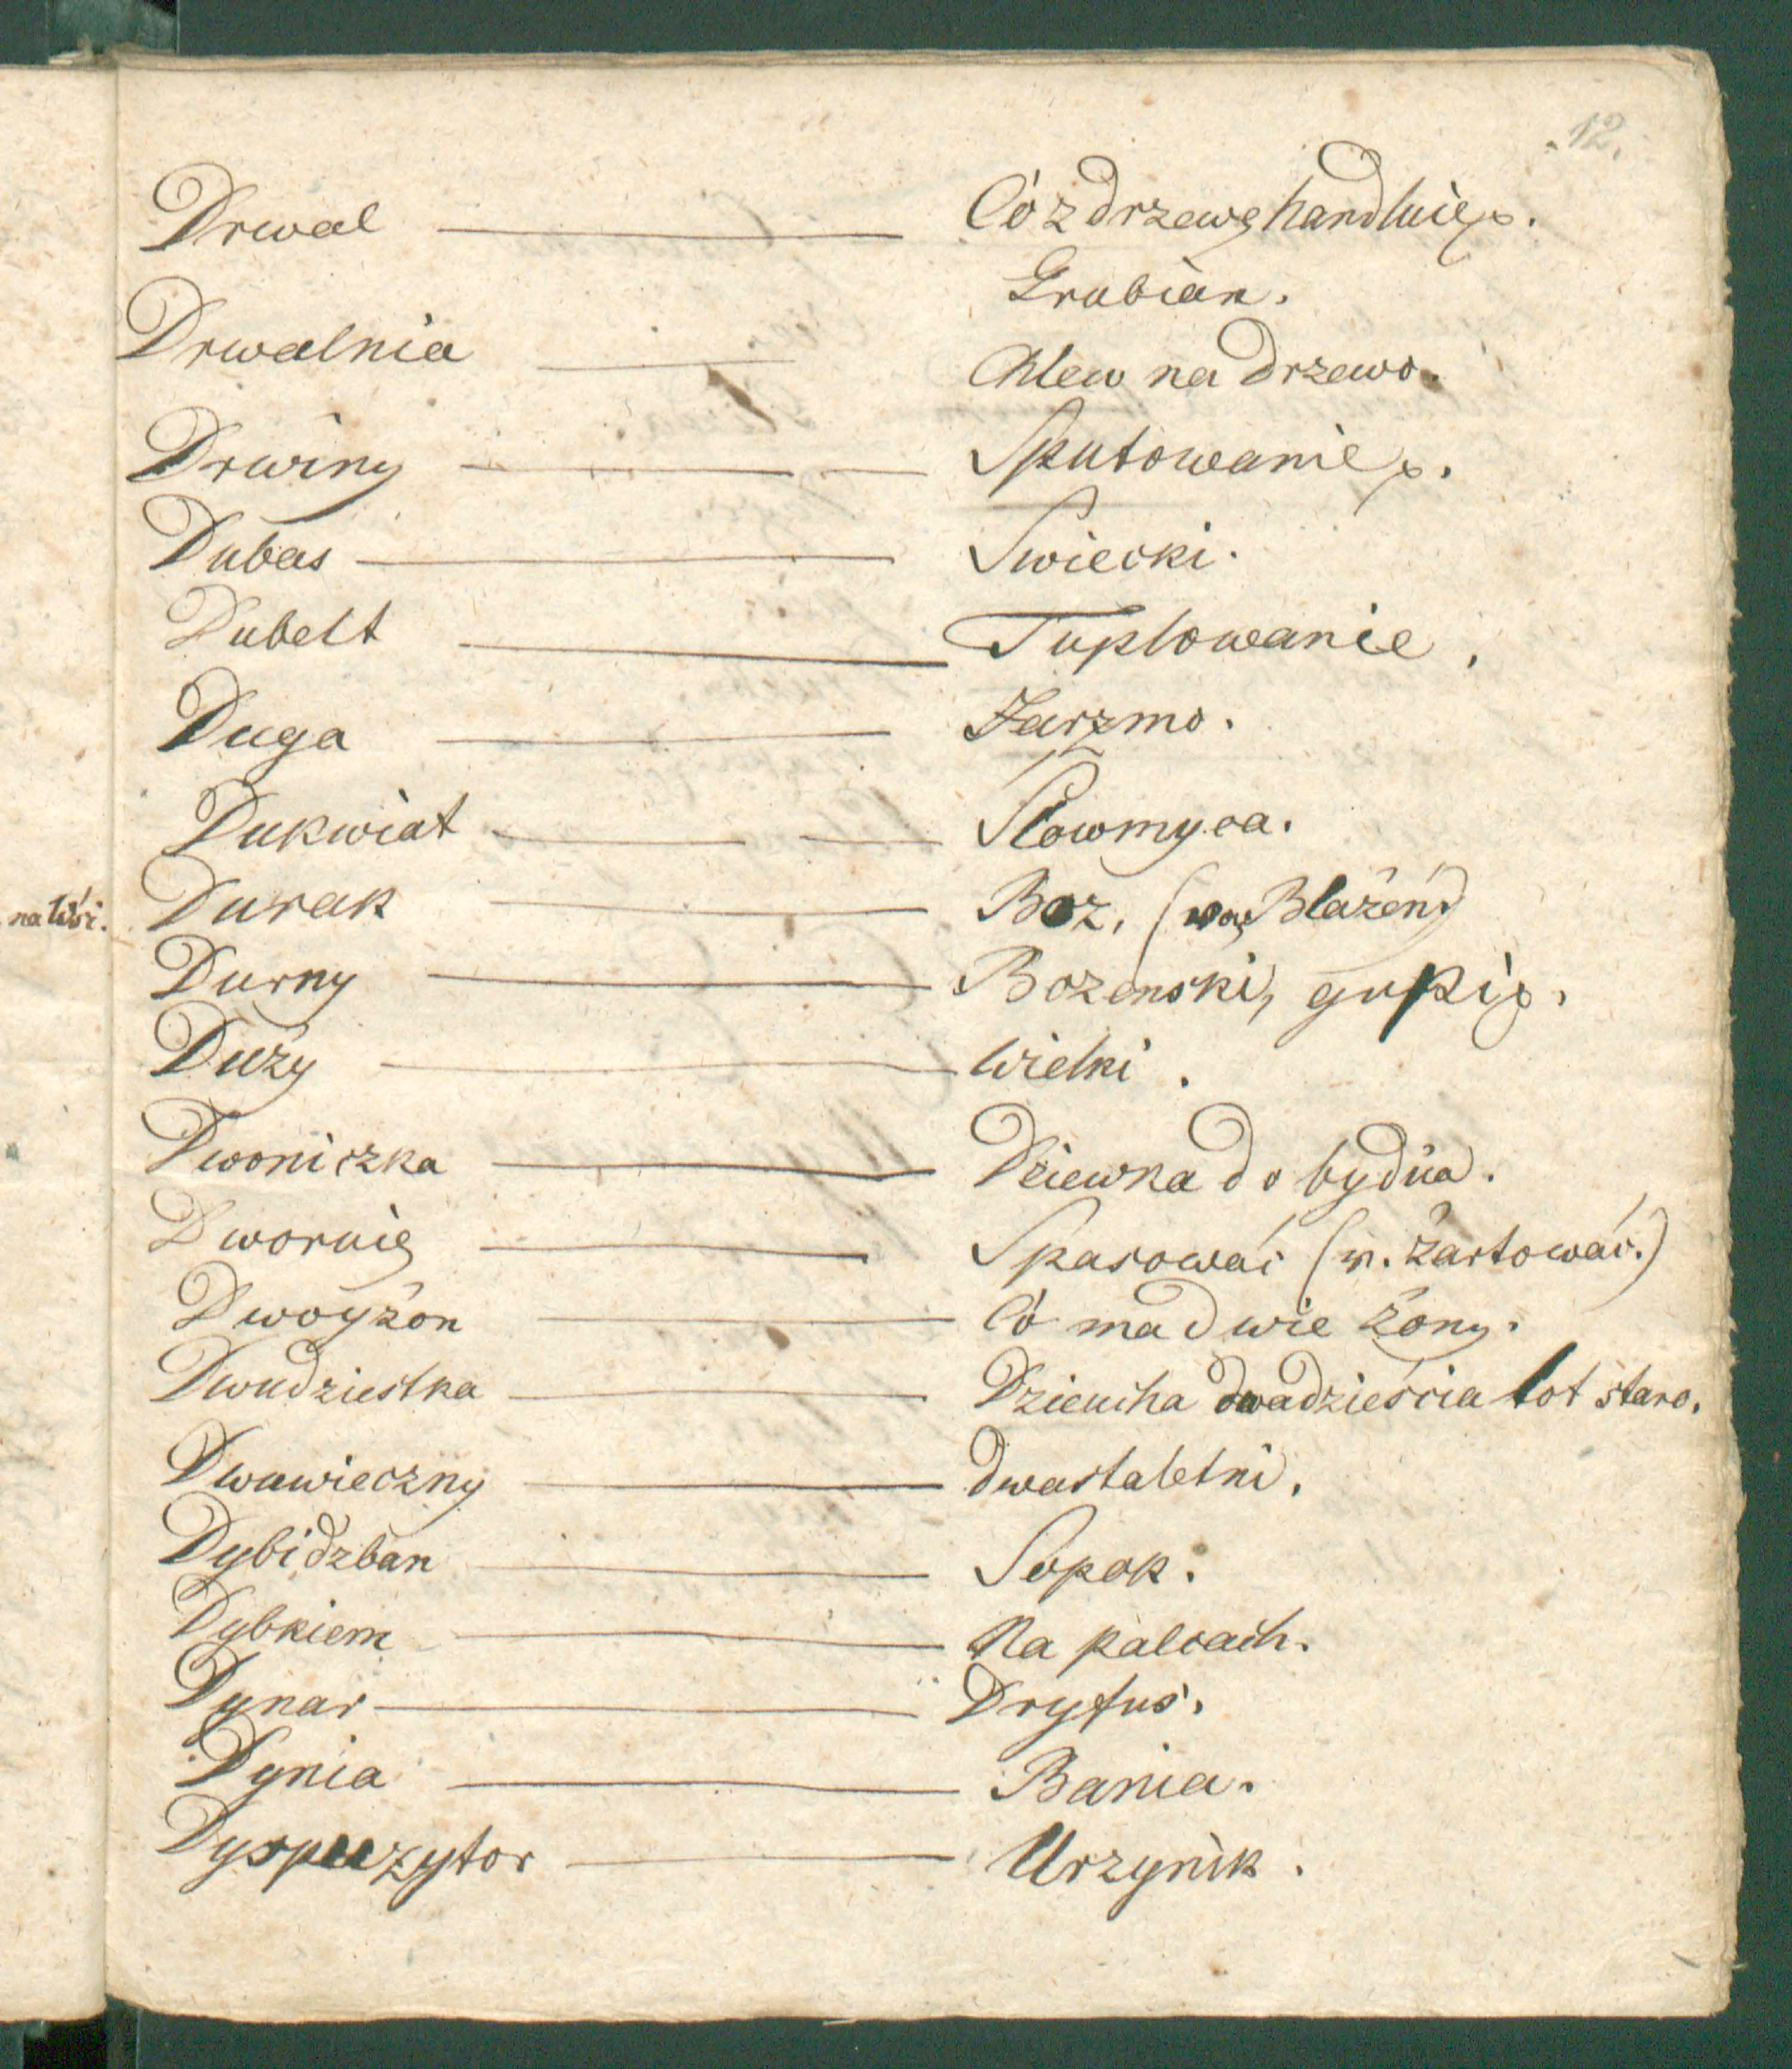 12.
Drwal — Có z drzewę handluie.
Grobian.
Drwalnia — Chlew na drzewo.
Drwiny — Sputowanie.
Dubas — Swiecki.
Dubelt — Tuplowanie.
Duga — Jarzmo.
Dukwiat — Slowmyca.
na Wsi. Durak — Boz, ( Blażén)
Durny — Bozenski, gupi.
Duży — Wielki.
Dwoniczka — Dziewka do bydła.
Dworuię — Spasować (n. żartować.)
Dwoyżón — Có ma dwie żony.
Dwudziestka — Dzieucha dwadzieścia lot staro.
Dwuwieczny — dwastaletni.
Dybidzban — Sopok.
Dybkiem — Na palcach.
Dynar — Dryfus.
Dynia — Bania.
Dyspuzytor — Urzynik.